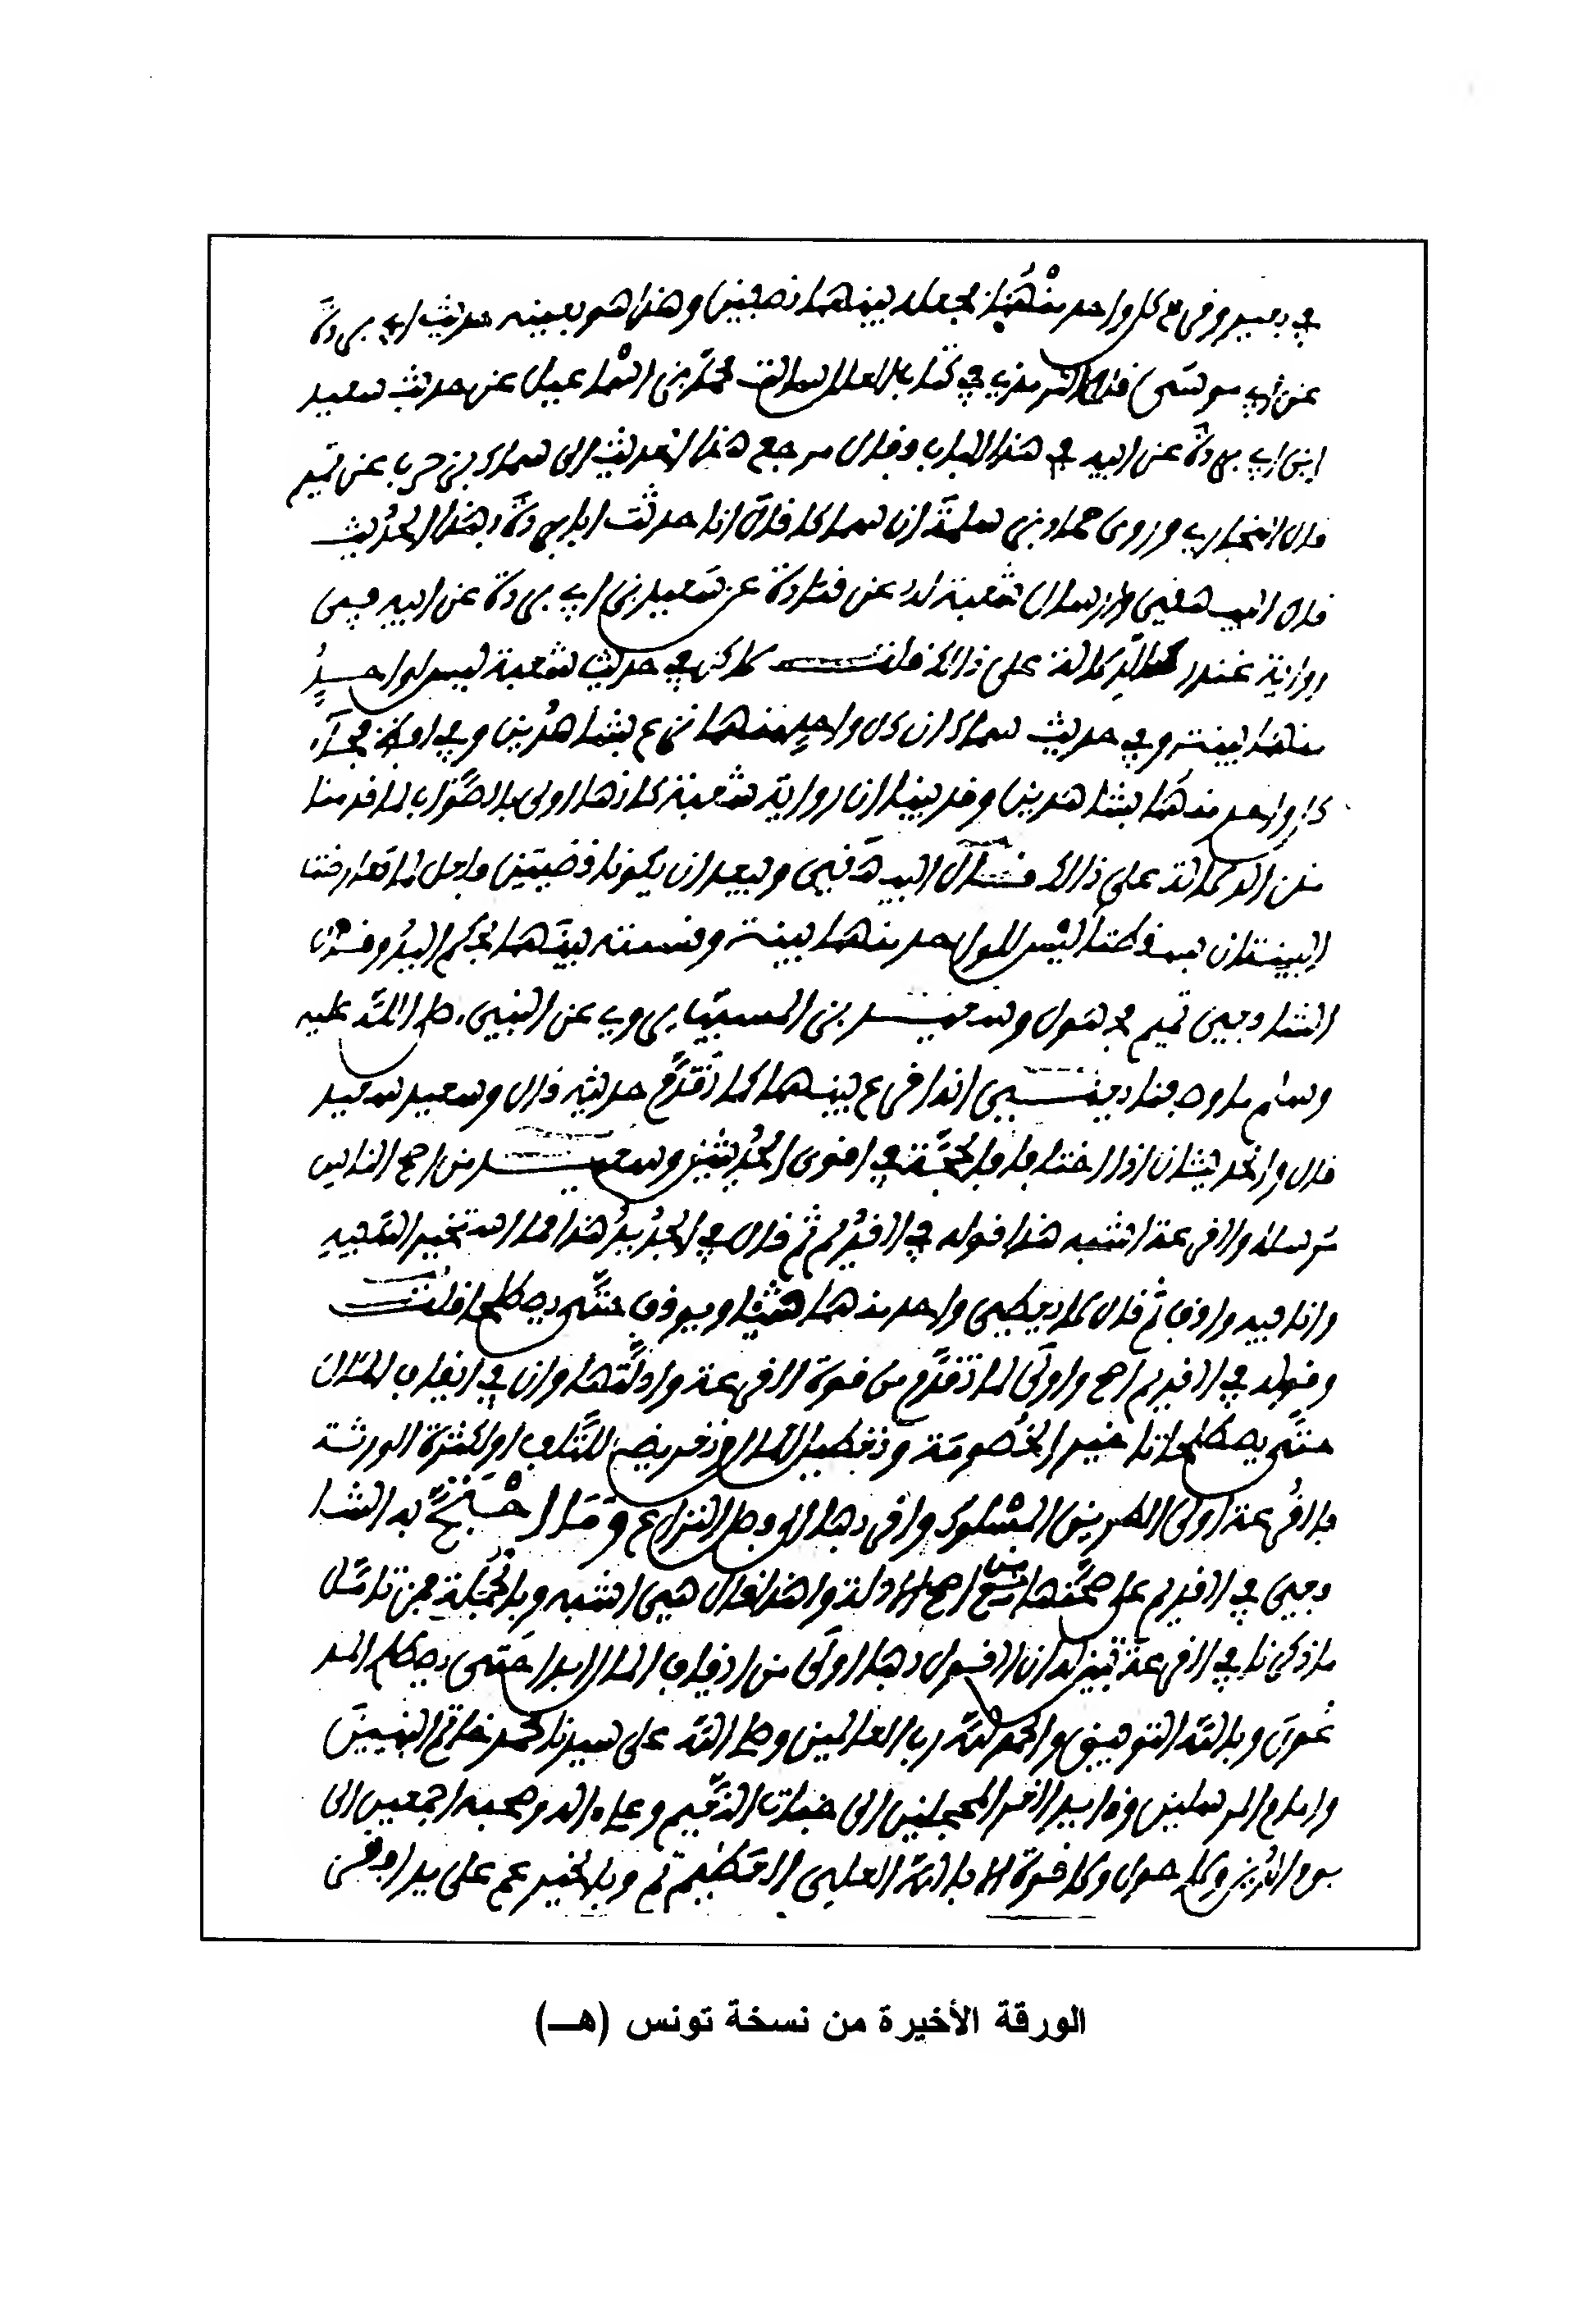 في بعير ونزع كل واحد منهما فجعله بينهما نصفين وهذا هو بعينه حديث ابي بردة
عن ابي موسى قال الترمذي في كتاب العلل سالت محمد بن اسماعيل عن حديث سعيد
ابن ابي بردة عن ابيه في هذا الباب وقال مرجع هذا الحديث الى سماك بن حرب عن تميم
قال البخاري وروى حماد بن سلمة ان سماكا قال انا حدثت ابا بردة بهذا الحديث
قال البيهقي وارسال شعبة له عن قتادة عن سعيد بن ابي بردة عن ابيه في
رواية غندر كالدلالة على ذالك قلت لاكن في حديث شعبة ليس لواحد
منهما بينة وفي حديث سماك ان كل واحد منهما نزع بشاهدين وفي لفظ فجاء
كل واحد منهما بشاهدين وقد بينا ان رواية شعبة كانها اولى بالصواب لما قدمنا
من الدلالة على ذالك قال البيهقي ويبعد ان يكونا قضيتين ولعل لما تعارضت
البينتان سقطتا فقيل ليس لواحد منهما بينة وقسمته بينهما بحكم اليد وقال
الشافعي تميم مجهول وسعيد بن المسيب يروي عن النبي صلى الله عليه
وسلم ما وصفنا يعني انه اقرع بينهما كما تقدم حديثه قال وسعيد سعيد
قال والحديثان اذا اختلفا فالحجة في اقوى الحديثين وسعيد من اصح الناس
مرسلا والقرعة اشبه هذا قوله في القديم ثم قال في الجديد هذا مما استخير الله فيه
وانا فيه واقف ثم قال لا يعطي واحد منهما شيئا ويوقف حتى يصطلحا قلت
وقوله في القديم اصح واولى لما تقدم من قوة القرعة وادلتها وان في ايقاف المال
حتى يصطلحا تاخير الخصومة وتعطيل المال وتعريضه للتلف او لكثرة الورثة
فالقرعة اولى الطريقين للسلوك واقربهما الى فصل النزاع وما احتج به الشا
فعي في القديم على صحتها من اصح الادلة ولهذا قال هي اشبه وبالجملة فمن تامل
ما ذكرنا في القرعة تبين له ان القول بها اولى من ايقاف المال ابدا حتى يصطلح المد
عون وبالله التوفيق والحمد لله رب العالمين وصلى الله على سيدنا محمد خاتم النبيين
وامام المرسلين وقايد الغر المحجلين الى جنات النعيم وعلى اله وصحبه اجمعين الى
يوم الدين ولا حول ولا قوة الا بالله العلي العظيم تم وبالخير عم على يد افقر
الورقة الأخيرة من نسخة تونس (هـ)